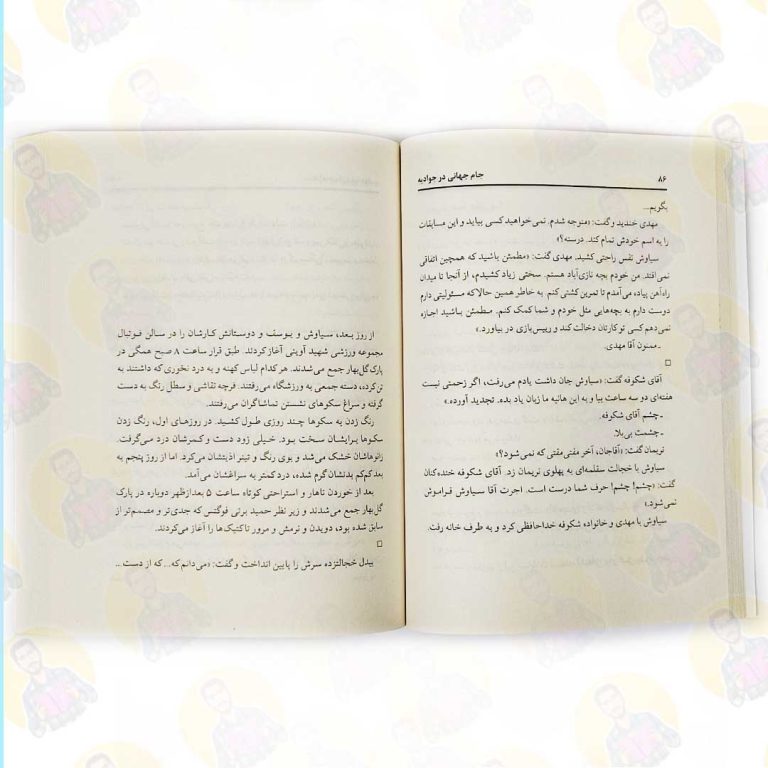 ۸۶
جام جهانی در جوادیه
بگویم...
مهدی خندید و گفت: «متوجه شدم. نمی‌خواهید کسی بیاید و این مسابقات
را به اسم خودش تمام کند. درسته؟»
سیاوش نفس راحتی کشید. مهدی گفت: «مطمئن باشید که همچین اتفاقی
نمی‌افتد. من خودم بچه نازی‌آباد هستم. سختی زیاد کشیدم، از آنجا تا میدان
راه‌آهن پیاده می‌آمدم تا تمرین کشتی کنم. به خاطر همین حالا که مسئولیتی دارم
دوست دارم به بچه‌هایی مثل خودم و شما کمک کنم. مطمئن باشید اجازه
نمی‌دهم کسی تو کارتان دخالت کند و رییس‌بازی در بیاورد.»
ـ ممنون آقا مهدی.
□
آقای شکوفه گفت: «سیاوش جان داشت یادم می‌رفت، اگر زحمتی نیست
هفته‌ای دو سه ساعت بیا و به این هانیه ما زبان یاد بده. تجدید آورده.»
ـ چشم آقای شکوفه.
ـ چشمت بی‌بلا.
نریمان گفت: «آقاجان، آخر مفتی مفتی که نمی‌شود؟»
سیاوش با خجالت سقلمه‌ای به پهلوی نریمان زد. آقای شکوفه خنده‌کنان
گفت: «چشم! چشم! حرف شما درست است. اجرت آقا سیاوش فراموش
نمی‌شود.»
سیاوش با مهدی و خانواده شکوفه خداحافظی کرد و به طرف خانه رفت.
از روز بعد، سیاوش و یوسف و دوستانش کارشان را در سالن فوتبال
مجموعه ورزشی شهید آوینی آغاز کردند. طبق قرار ساعت ۸ صبح همگی در
پارک گل‌بهار جمع می‌شدند. هر کدام لباس کهنه و به درد نخوری که داشتند به
تن کرده، دسته جمعی به ورزشگاه می‌رفتند. فرچه نقاشی و سطل رنگ به دست
گرفته و سراغ سکوهای نشستن تماشاگران می‌رفتند.
رنگ زدن به سکوها چند روزی طول کشید. در روزهای اول، رنگ زدن
سکوها برایشان سخت بود. خیلی زود دست و کمرشان درد می‌گرفت.
زانوهاشان خشک می‌شد و بوی رنگ و تینر اذیتشان می‌کرد. اما از روز پنجم به
بعد کم‌کم بدنشان گرم شده، درد کمتر به سراغشان می‌آمد.
بعد از خوردن ناهار و استراحتی کوتاه ساعت ۵ بعدازظهر دوباره در پارک
گل‌بهار جمع می‌شدند و زیر نظر حمید برتی فوگتس که جدی‌تر و مصمم‌تر از
سابق شده بود، دویدن و نرمش و مرور تاکتیک‌ها را آغاز می‌کردند.
□
بیدل خجالتزده سرش را پایین انداخت و گفت: «می‌دانم که... که از دست...